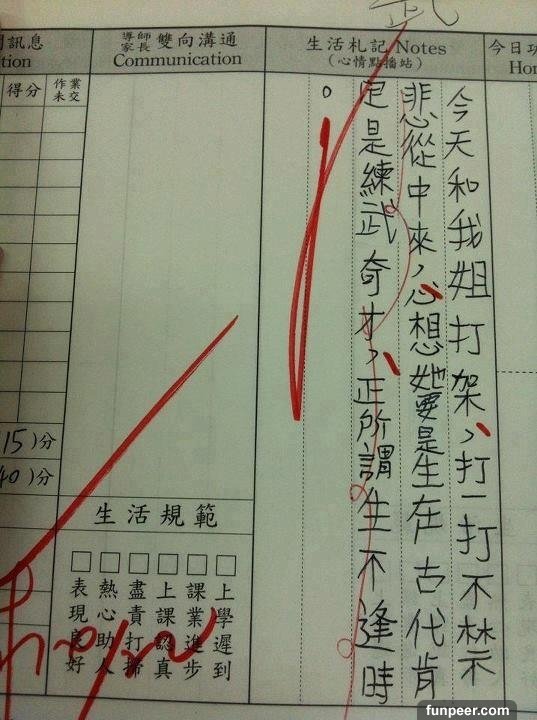 訊息
tion
得分
作業未交
15)分
40)分
導師家長 雙向溝通
Communication
生活札記 Notes
(心情點播站)
今日
武
今天和我姐打架，打一打不禁
悲從中來，心想她要是生在古代肯
定是練武奇才，正所謂生不逢時
。
生活規範
□上學遲到
□課業進步
□上課認真
□盡責打掃
□熱心助人
□表現良好
funpeer.com